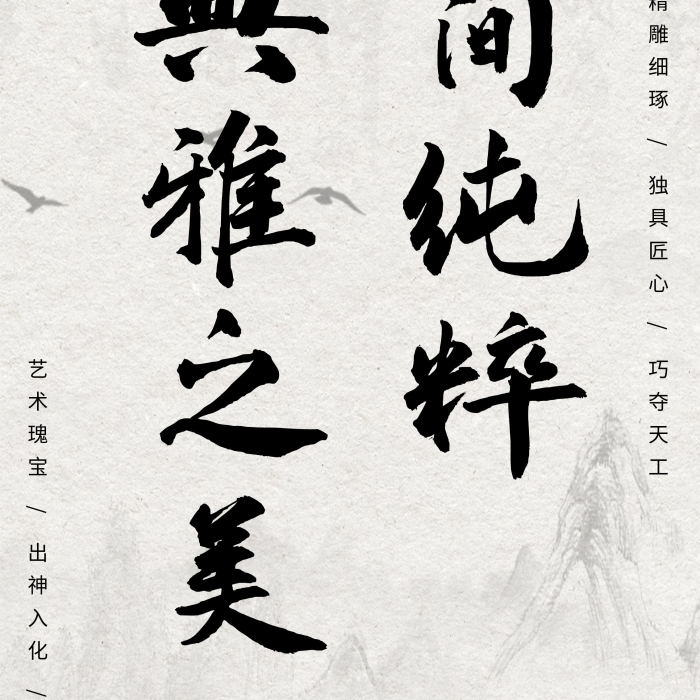 精雕细琢 / 独具匠心 / 巧夺天工
间纯粹
典雅之美
艺术瑰宝 / 出神入化 /